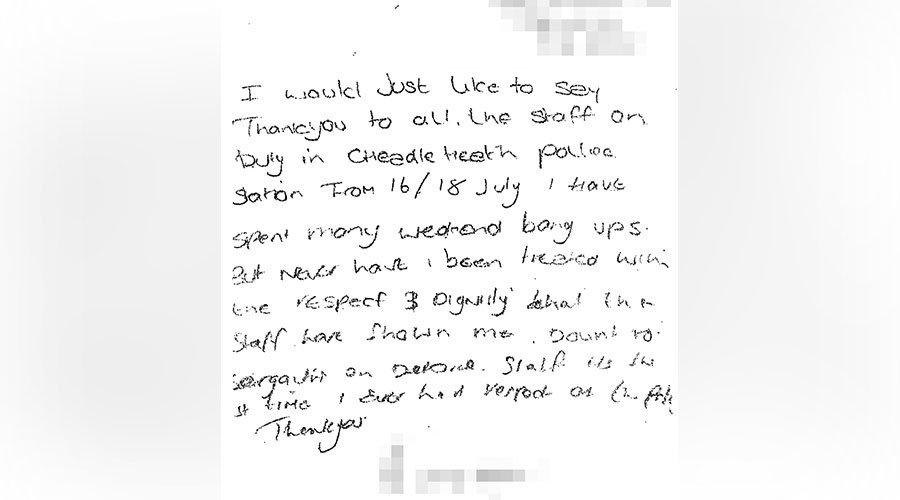 I would Just like to say
Thankyou to all. the staff on
Duty in CHeadle Heath police
Station From 16/18 July I Have
spent many weekend bang ups.
But Never have I been treated with
the respect & Dignity that the
Staff have Shown me. Down to
on Staff its the
1st time I Ever had respect on the
Thankyou